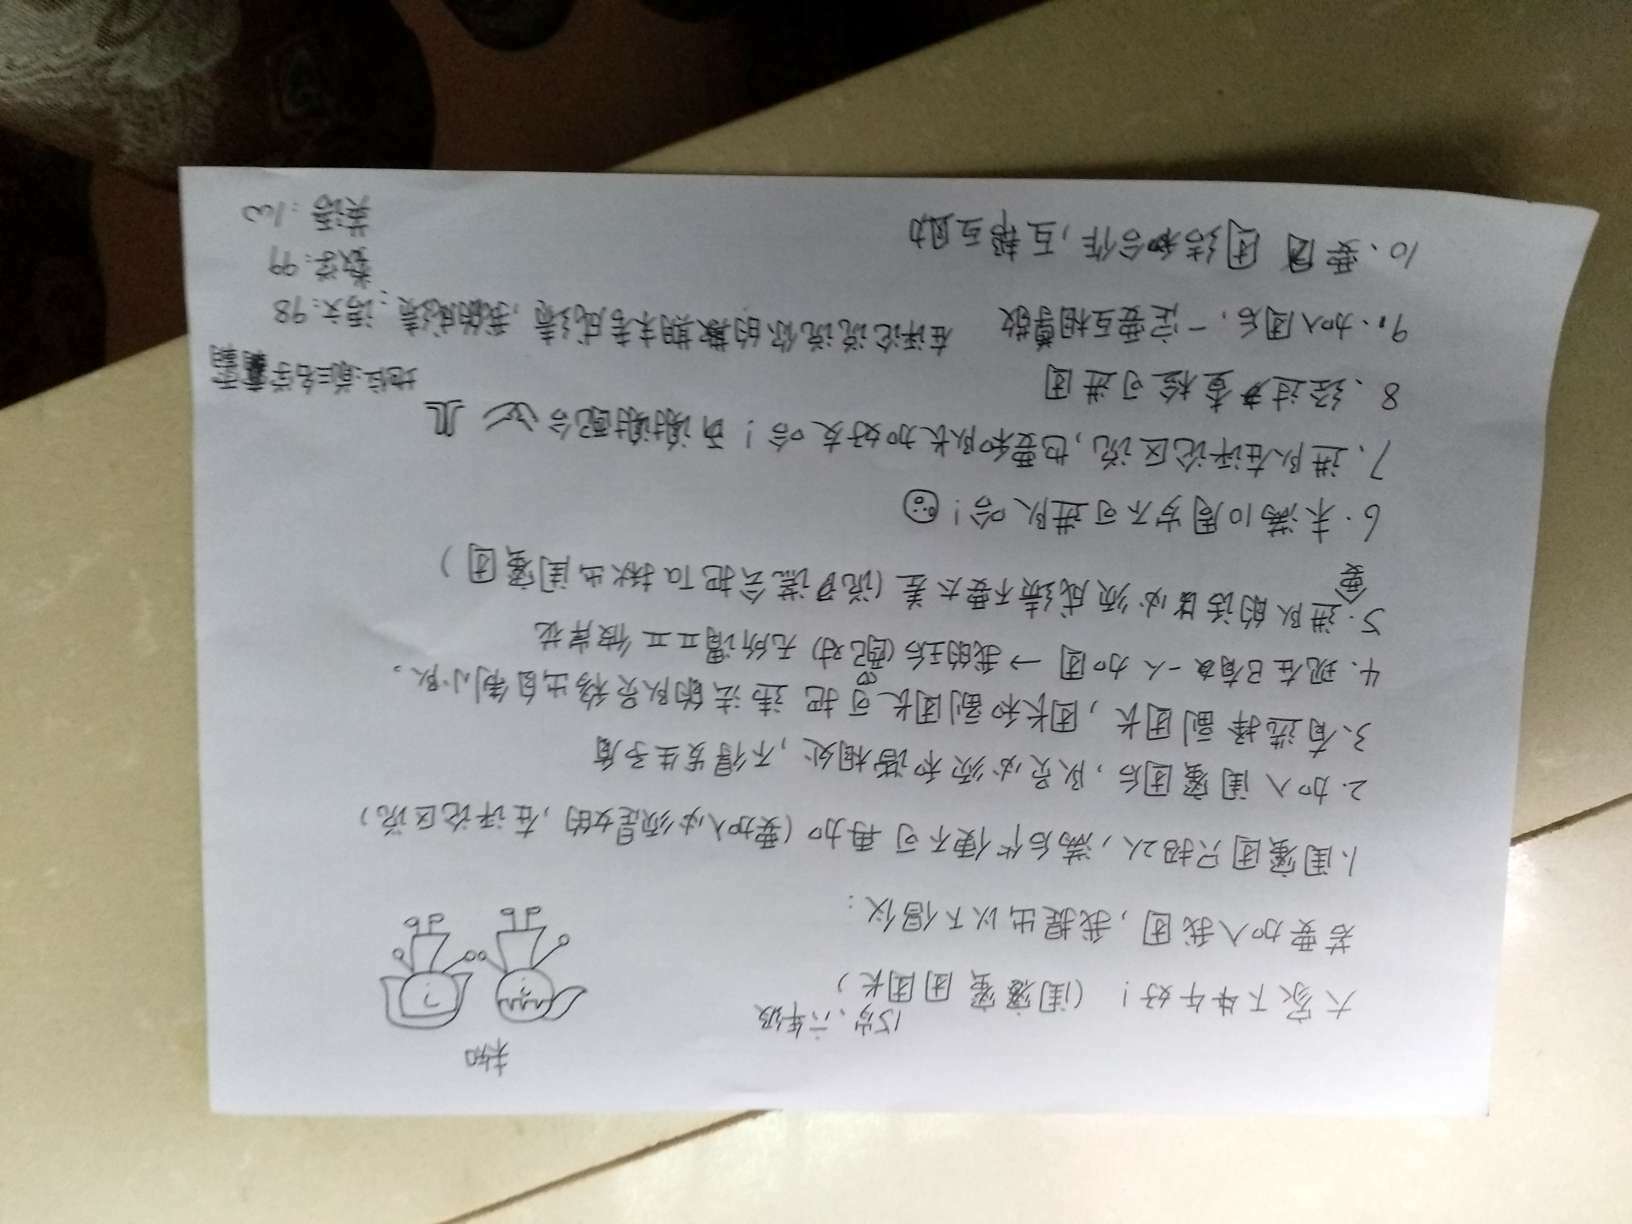 未知
15岁、六年级
大家下午好！（闺蜜团团长）
若要加入我团，我提出以下倡仪：
1.闺蜜团只招2人，满后便不可再加（要加入必须是女的，在评论区说）
2.加入闺蜜团后，队员必须和谐相处，不得发生矛盾
3.有选择副团长，团长和副团长可把违法的队员移出自制小队。
4.现在已有一人加团→我的王后（配对）无所谓 彼岸花
5.进队的话必须要成绩不要太差（说谎会把Ta揪出闺蜜团）
6.未满10周岁不可进队哈！
7.进队在评论区说，也要和队长加好友哈！谢谢配合
8.经过查检可进团
地位：前三名学霸
9.加入团后，一定要互相尊敬 在评论说说你的期末考成绩，我的成绩：语文：98
数学：99
英语：100
10、要团结和合作，互帮互助